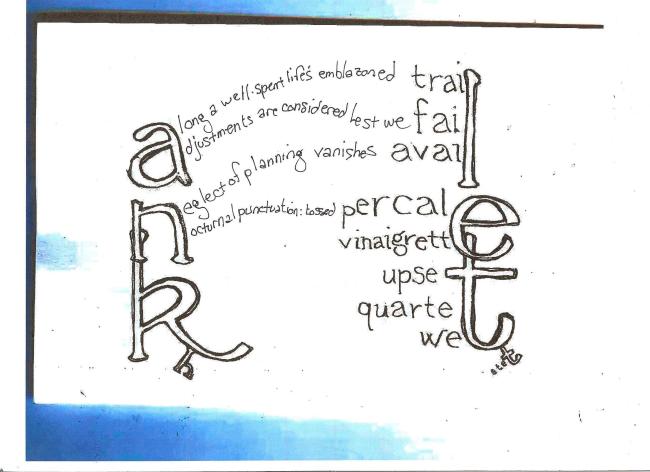 along a well-spent life's emblazoned trail
adjustments are considered lest we fail
avail
neglect of planning vanishes
nocturnal punctuation: tossed percale
vinaigrette
upset
quartet
k wet
h